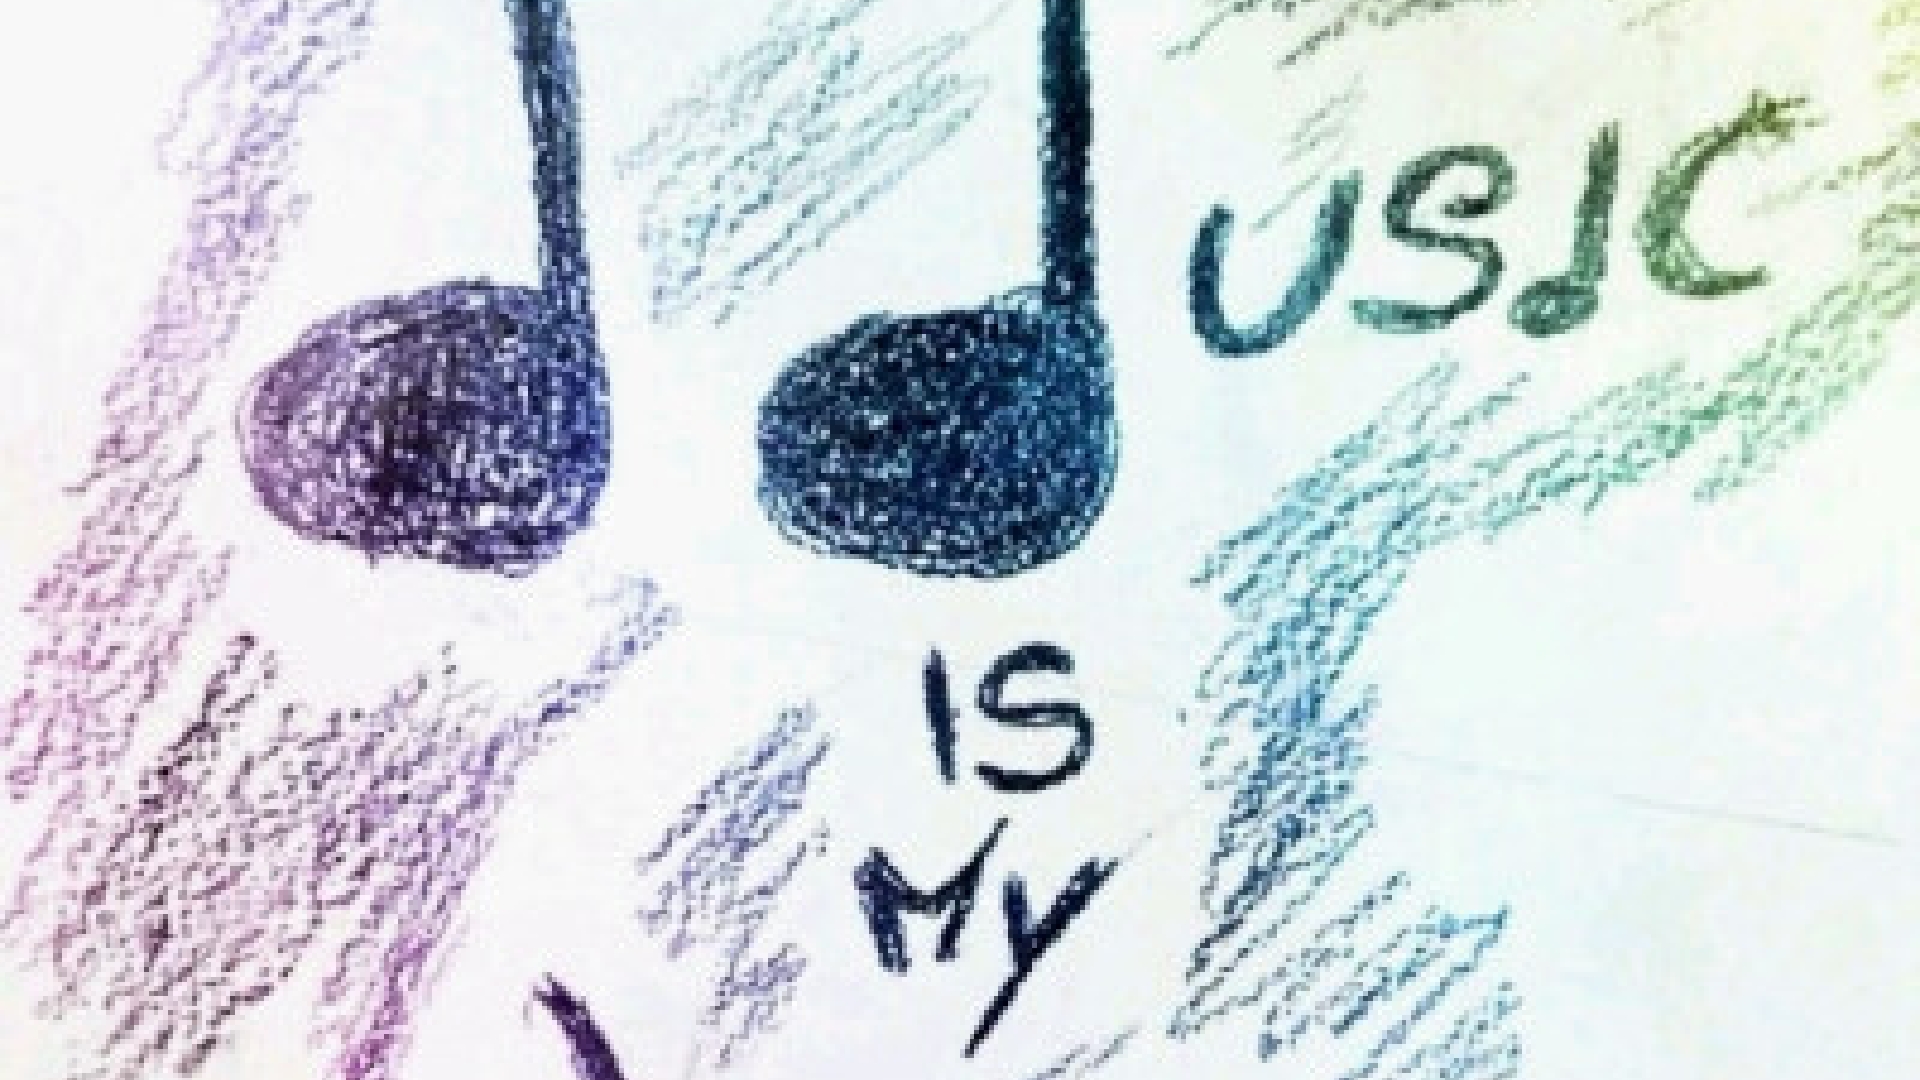 USIC
IS
My